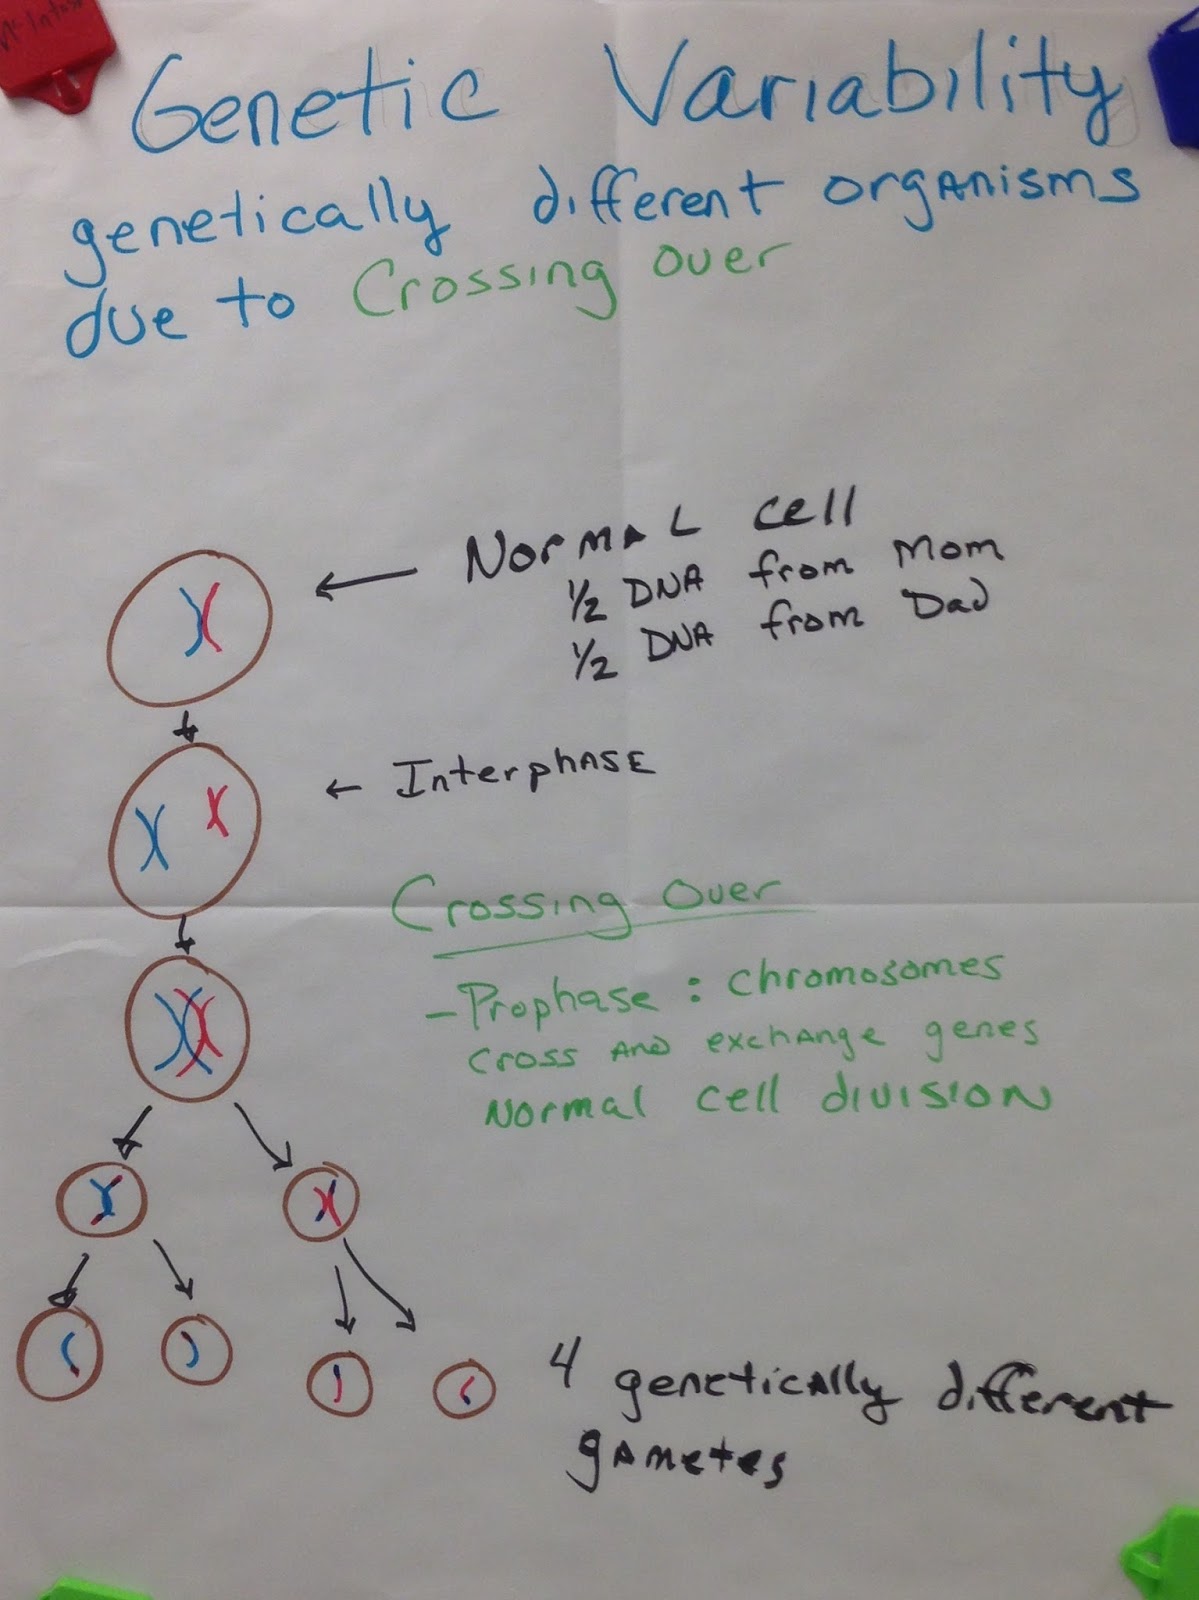 McIntosh
Genetic Variability
genetically different organisms
due to Crossing over
Normal cell
1/2 DNA from Mom
1/2 DNA from Dad
Interphase
Crossing Over
- Prophase : chromosomes
cross and exchange genes
Normal cell division
4 genetically different
gametes